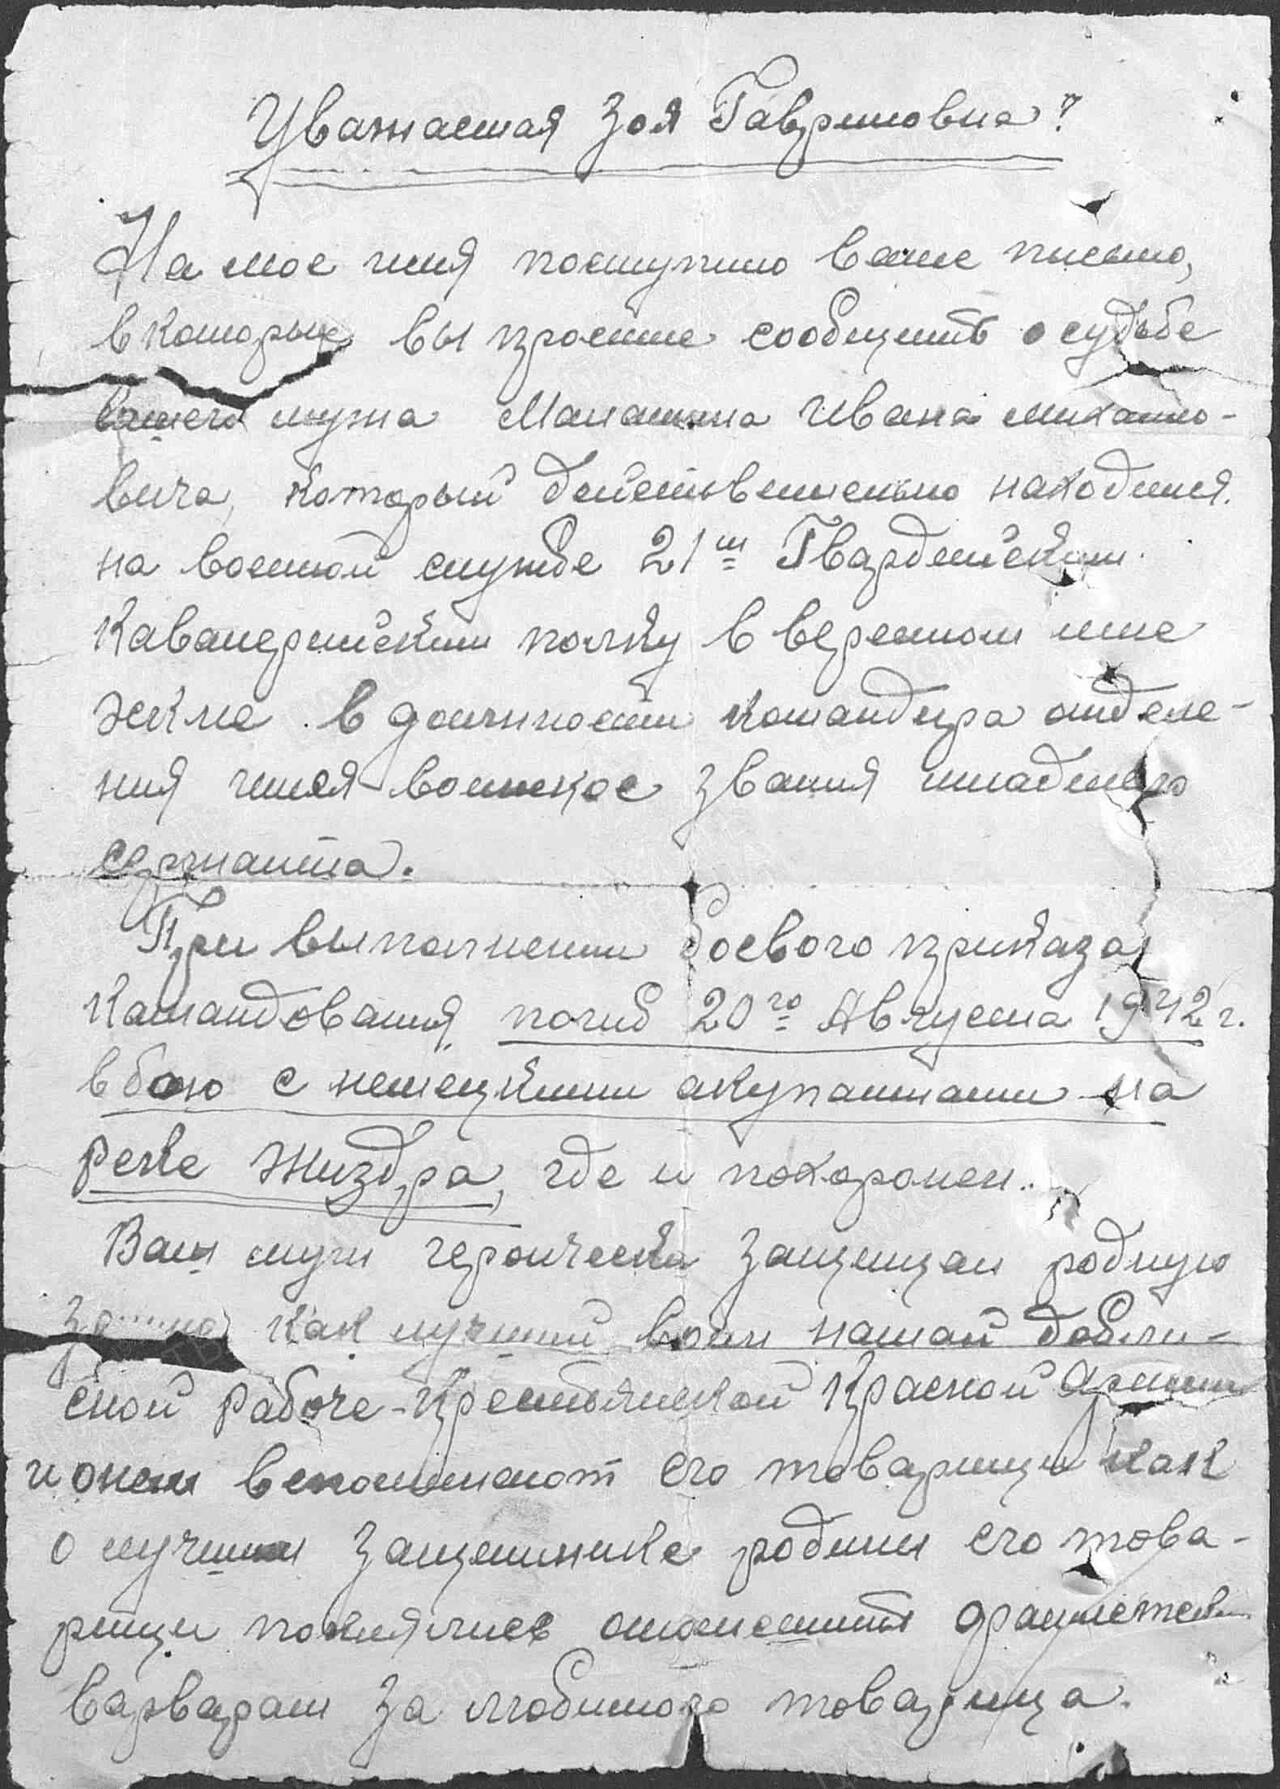 Уважаемая Зоя Гавриловна!
На мое имя поступило ваше письмо,
в которых вы просите сообщить о судьбе
вашего мужа Ивана Михайло-
вича, который действительно находился
на военной службе 21м Гвардейском
Кавалерийским полку в
в должности командира отделе-
ния имея воинское звания младшего
сержанта.
При выполнении боевого приказа
Командования погиб 20го Августа 1942 г.
в бою с немецкими акупантами на
реке Жиздра, где и похоронен.
Ваш муж героически защищал родную
как лучший воин нашей добле-
сной Рабоче-Крестьянской Красной Армии
и о нем вспоминают его товарищи как
о лучшем защитнике родины его това-
рищи поклялись отомстить
варварам за любимого товарища.